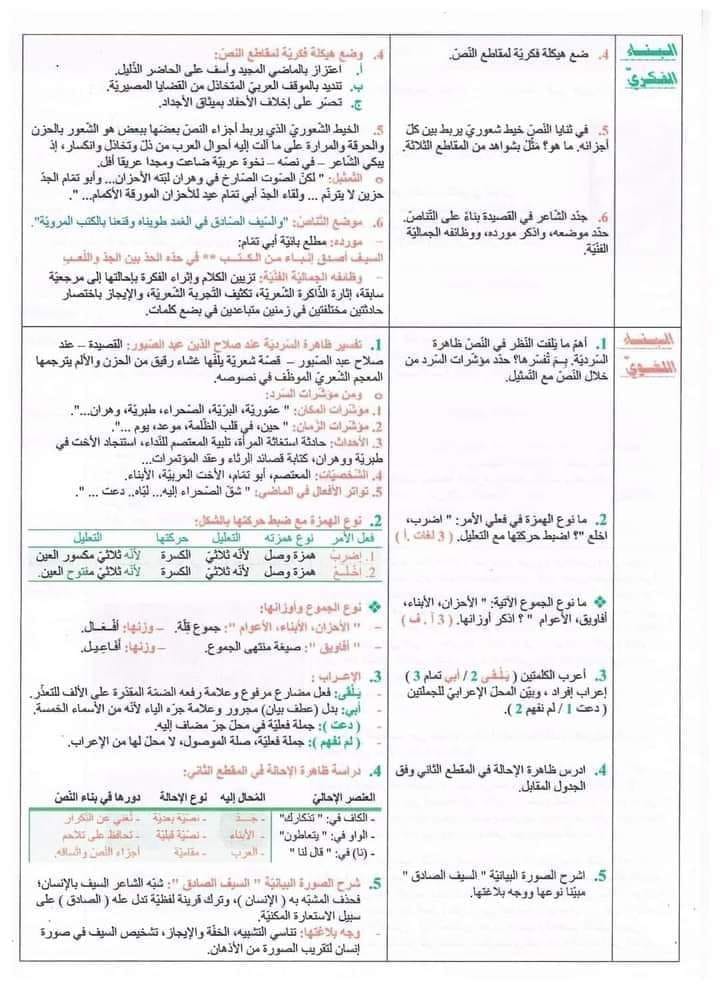 البناء
الفكريّ
4. ضع هيكلة فكريّة لمقاطع النّصّ.
5. في ثنايا النّصّ خيط شعوري يربط بين كلّ
أجزائه. ما هو؟ مَثِّلْ بشواهد من المقاطع الثلاثة.
6. جدّد الشّاعر في القصيدة بناءً على التّناصّ.
حدّد موضعه، واذكر مورده، ووظائفه الجماليّة
الفنّيّة.
4. وضع هيكلة فكريّة لمقاطع النصّ:
أ. اعتزاز بالماضي المجيد وأسف على الحاضر الذّليل.
ب. تنديد بالموقف العربيّ المتخاذل من القضايا المصيريّة.
ج. تحسّر على إخلاف الأحفاد بميثاق الأجداد.
5. الخيط الشّعوريّ الذي يربط أجزاء النصّ بعضها ببعض هو الشّعور بالحزن
والحرقة والمرارة على ما آلت إليه أحوال العرب من ذلّ وتخاذل وانكسار، إذ
يبكي الشّاعر – في نصّه – نخوة عربيّة ضاعت ومجدا عريقا أفل.
o التّمثيل: "لكنّ الصوت الصّارخ في وهران لبّته الأحزان... وأبو تمّام الجدّ
حزين لا يترنّم ... ولقاء الجدّ أبي تمام عيد للأحزان المورقة الأكمام... ".
6. موضع التّناصّ: "والسّيف الصّادق في الغمد طويناه وقنعنا بالكتب المرويّة".
- مورده: مطلع بائيّة أبي تمّام:
السيف أصدق إنباء من الكتب ** في حدّه الحدّ بين الجدّ واللّعب
- وظائفه الجماليّة الفنّيّة: تزيين الكلام وإثراء الفكرة بإحالتها إلى مرجعيّة
سابقة، إثارة الذّاكرة الشّعريّة، تكثيف التّجربة الشّعريّة، والإيجاز باختصار
حادثتين مختلفتين في زمنين متباعدين في بضع كلمات.
البناء
اللغويّ
1. أهمّ ما يَلفت النّظر في النّصّ ظاهرة
السرديّة. بِمَ تُفسّرها؟ حدّد مؤشّرات السّرد من
خلال النّصّ مع التّمثيل.
2. ما نوع الهمزة في فعلي الأمر: " اضرب،
اخلع "؟ اضبط حركتها مع التعليل. ( 3 لغات. أ )
❖ ما نوع الجموع الآتية: "الأحزان، الأبناء،
أفاويق، الأعوام " ؟ اذكر أوزانها. ( 3 آ . ف )
3. أعرب الكلمتين ( يَلْقى 2 / أبي تمام 3 )
إعراب إفراد ، وبيّن المحل الإعرابيّ للجملتين
( دعت 1 / لم نفهم 2 ).
4. ادرس ظاهرة الإحالة في المقطع الثاني وفق
الجدول المقابل.
5. اشرح الصورة البيانيّة " السيف الصادق "
مبيّنا نوعها ووجه بلاغتها.
1. تفسير ظاهرة السرديّة عند صلاح الذين عبد الصّبور: القصيدة – عند
صلاح عبد الصّبور – قصّة شعريّة يلفّها غشاء رقيق من الحزن والألم يترجمها
المعجم الشّعريّ الموظّف في نصوصه.
o ومن مؤشّرات السّرد:
1. مؤشّرات المكان: " عمّوريّة، البرّيّة، الصّحراء، طبريّة، وهران...".
2. مؤشّرات الزّمان: " حين، في قلب الظّلمة، موعد، يوم ...".
3. الأحداث: حادثة استغاثة المرأة، تلبية المعتصم للنّداء، استنجاد الأخت في
طبريّة ووهران، كتابة قصائد الرثاء وعقد المؤتمرات...
4. الشّخصيّات: المعتصم، أبو تمّام، الأخت العربيّة، الأبناء.
5. تواتر الأفعال في الماضي: " شقّ الصّحراء إليه... لبّاه.. دعت ... ".
2. نوع الهمزة مع ضبط حركتها بالشكل:
فعل الأمر نوع همزته التعليل حركتها التعليل
1. اِضرِبْ همزة وصل لأنّه ثلاثيّ الكسرة لأنّه ثلاثيّ مكسور العين
2. اِخْلَعْ همزة وصل لأنّه ثلاثيّ الكسرة لأنّه ثلاثيّ مفتوح العين.
❖ نوع الجموع وأوزانها:
- " الأحزان، الأبناء، الأعوام ": جموع قلّة. - وزنها: أفْـعَـال.
- " أفاويق ": صيغة منتهى الجموع. - وزنها: أفاعِيـل.
3. الإعراب :
- يَلْقى: فعل مضارع مرفوع وعلامة رفعه الضمّة المقدّرة على الألف للتعذّر.
- أبي: بدل (عطف بيان) مجرور وعلامة جرّه الياء لأنّه من الأسماء الخمسة.
- ( دعت ): جملة فعليّة في محلّ جرّ مضاف إليه.
- ( لم نفهم ): جملة فعليّة، صلة الموصول، لا محلّ لها من الإعراب.
4. دراسة ظاهرة الإحالة في المقطع الثاني:
العنصر الإحاليّ المُحال إليه نوع الإحالة دورها في بناء النّصّ
-(الكاف في: " تذكارك" - جـدّ - نصيّة بعديّة - تُغني عن التّكرار
-(الواو في: " يتعاطون" - الأبناء - نصيّة قبليّة - تحافظ على تلاحم
-(نا) في: " قال لنا " - العرب - مقاميّة أجزاء النّصّ واتّساقه.
5. شرح الصورة البيانيّة " السيف الصادق ": شبّه الشاعر السيف بالإنسان؛
فحذف المشبّه به ( الإنسان )، وترك قرينة لفظيّة تدل عله ( الصادق ) على
سبيل الاستعارة المكنيّة.
- وجه بلاغتها: تناسي التشبيه، الخفّة والإيجاز، تشخيص السيف في صورة
إنسان لتقريب الصورة من الأذهان.